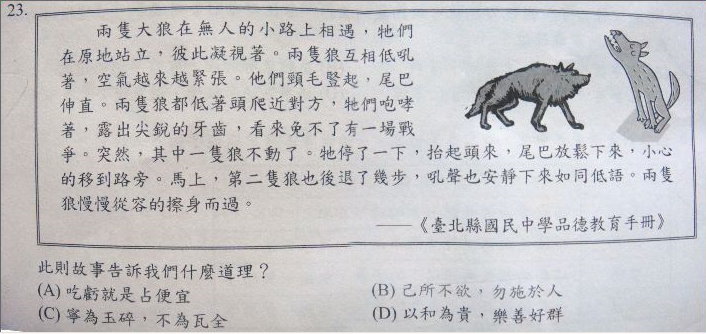 23.
兩隻大狼在無人的小路上相遇，牠們
在原地站立，彼此凝視著。兩隻狼互相低吼
著，空氣越來越緊張。他們頸毛豎起，尾巴
伸直。兩隻狼都低著頭爬近對方，牠們咆哮
著，露出尖銳的牙齒，看來免不了有一場戰
爭。突然，其中一隻狼不動了。牠停了一下，抬起頭來，尾巴放鬆下來，小心
的移到路旁。馬上，第二隻狼也後退了幾步，吼聲也安靜下來如同低語。兩隻
狼慢慢從容的擦身而過。
——《臺北縣國民中學品德教育手冊》
此則故事告訴我們什麼道理？
(A) 吃虧就是占便宜 (B) 己所不欲，勿施於人
(C) 寧為玉碎，不為瓦全 (D) 以和為貴，樂善好群